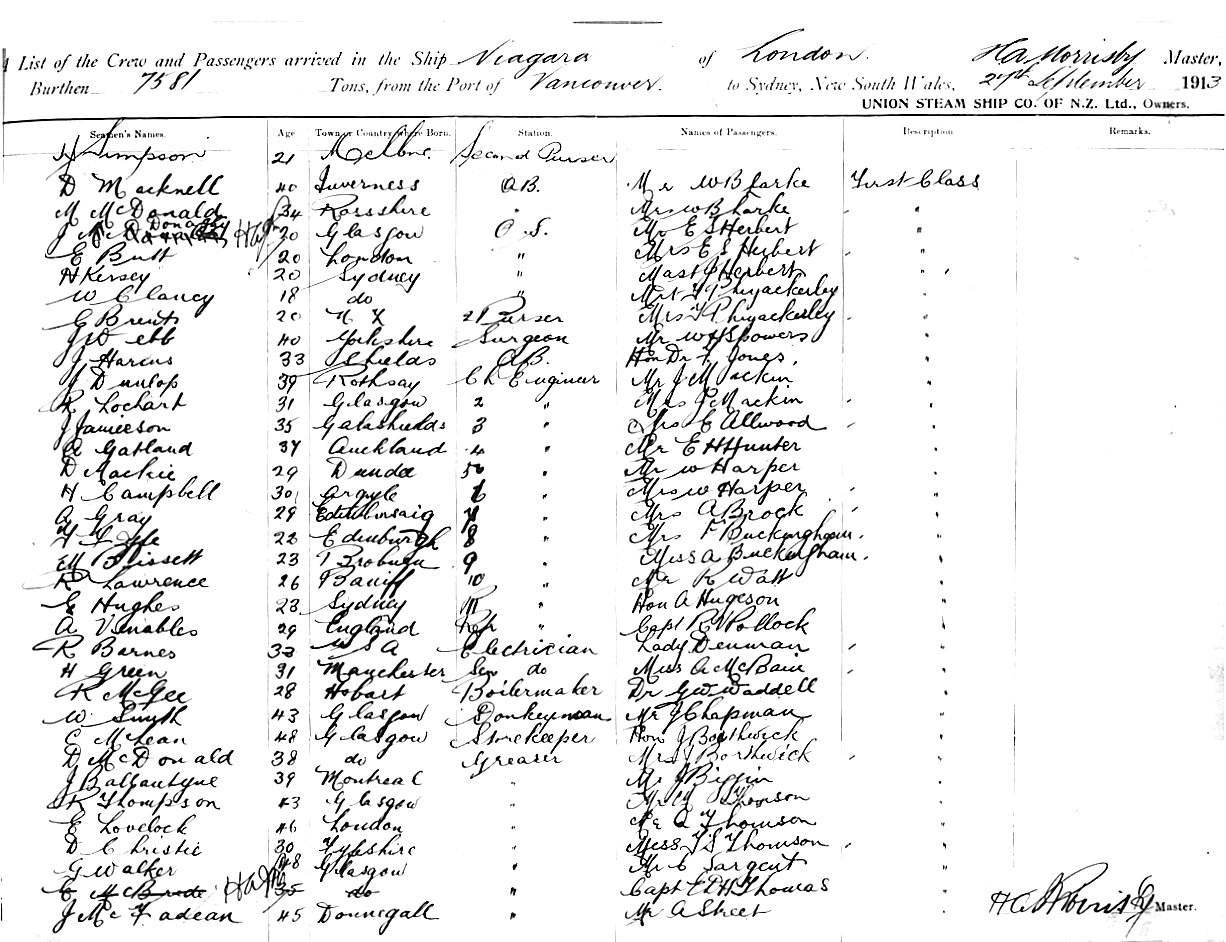 List of the Crew and Passengers arrived in the Ship Niagara of London. HA Morrisby Master,
Burthen 7581 Tons, from the Port of Vancouver. to Sydney, New South Wales, 27th September 1913
UNION STEAM SHIP CO. OF N.Z. Ltd., Owners.
Seamen's Names. Age Town or Country where Born. Station. Names of Passengers. Description Remarks.
H Simpson 21 Melbne. Second Purser
D Macknell 40 Inverness A.B. Mr W B Larke First Class
M McDonald 34 Rossshire " Mrs W B Larke "
J Mc 20 Glasgow O.S. Mr E S Herbert "
E Butt 20 London " Mrs E S Herbert "
H Kersey 20 Sydney " Mast Herbert "
W Clancy 18 do " Phizackerley "
E Brent 20 N Z 2 Purser Mrs Phizackerley "
J Webb 40 Yorkshire Surgeon Mr W H S Powers "
J Harcus 33 Shields A.B. Hon Dr F. Jones. "
J Dunlop 39 Rothsay Ch Engineer Mr J Mackin "
R Lochart 31 Glasgow 2 " Mrs J Mackin "
J Jamieson 35 Galashields 3 " Mrs E Allwood "
A Gatland 37 Auckland 4 " Mr E H Hunter "
D Mackie 29 Dundee 5 " Mr W Harper "
H Campbell 30 Argyle 6 " Mrs W Harper "
A Gray 29 7 " Mrs A Brock "
Fyfe 22 Edinburgh 8 " Mrs F Buckingham "
E M Blissett 23 9 " Miss A Buckingham "
R Lawrence 26 Banff 10 " Mr R Watt "
E Hughes 23 Sydney 11 " Hon A Hugeson "
A Venables 29 England " Capt R V Pollock "
R Barnes 33 U S A Electrician Lady Denman "
H Green 31 Manchester do Miss A McBain "
R McGee 28 Hobart Boilermaker Dr G W Waddell "
W. Smyth 43 Glasgow Donkeyman Mr J Chapman "
C McLean 48 Glasgow Storekeeper Hon J Borthwick "
D McDonald 38 do Greaser Mrs J Borthwick "
J Ballantyne 39 Montreal " Mr J Biggin "
R Thompson 43 Glasgow " Mr Thomson "
E Lovelock 46 London " Mr A Thomson "
D Christie 30 Fyfeshire " Miss J S Thomson "
G Walker 48 Glasgow " Mr C Sargent "
C McBride 35 do " Capt E P H Thomas "
J McFadean 45 Donnegall " Mr A Street " HA Morrisby Master.